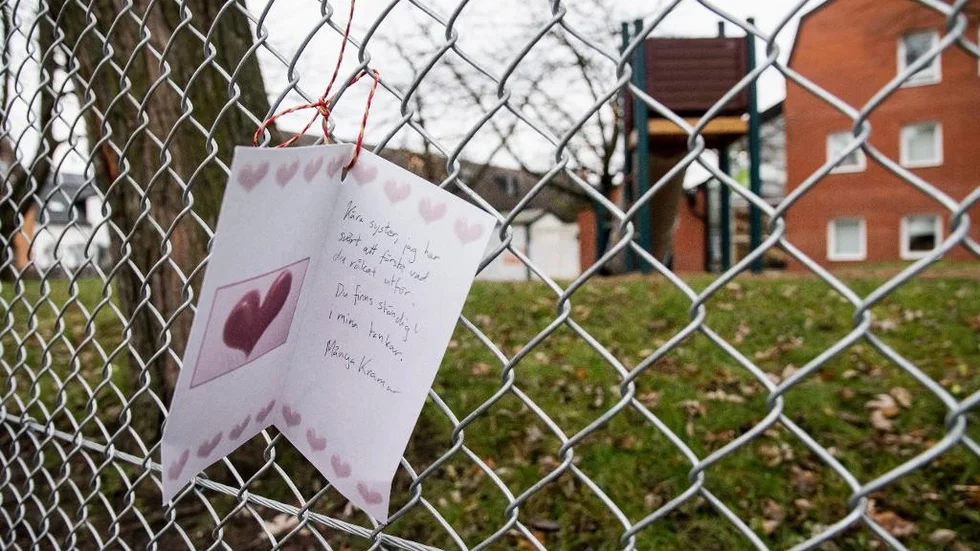 Kära syster, jag har
svårt att förstå vad
du råkat utför.
Du finns ständigt
i mina tankar.
Många Kramar